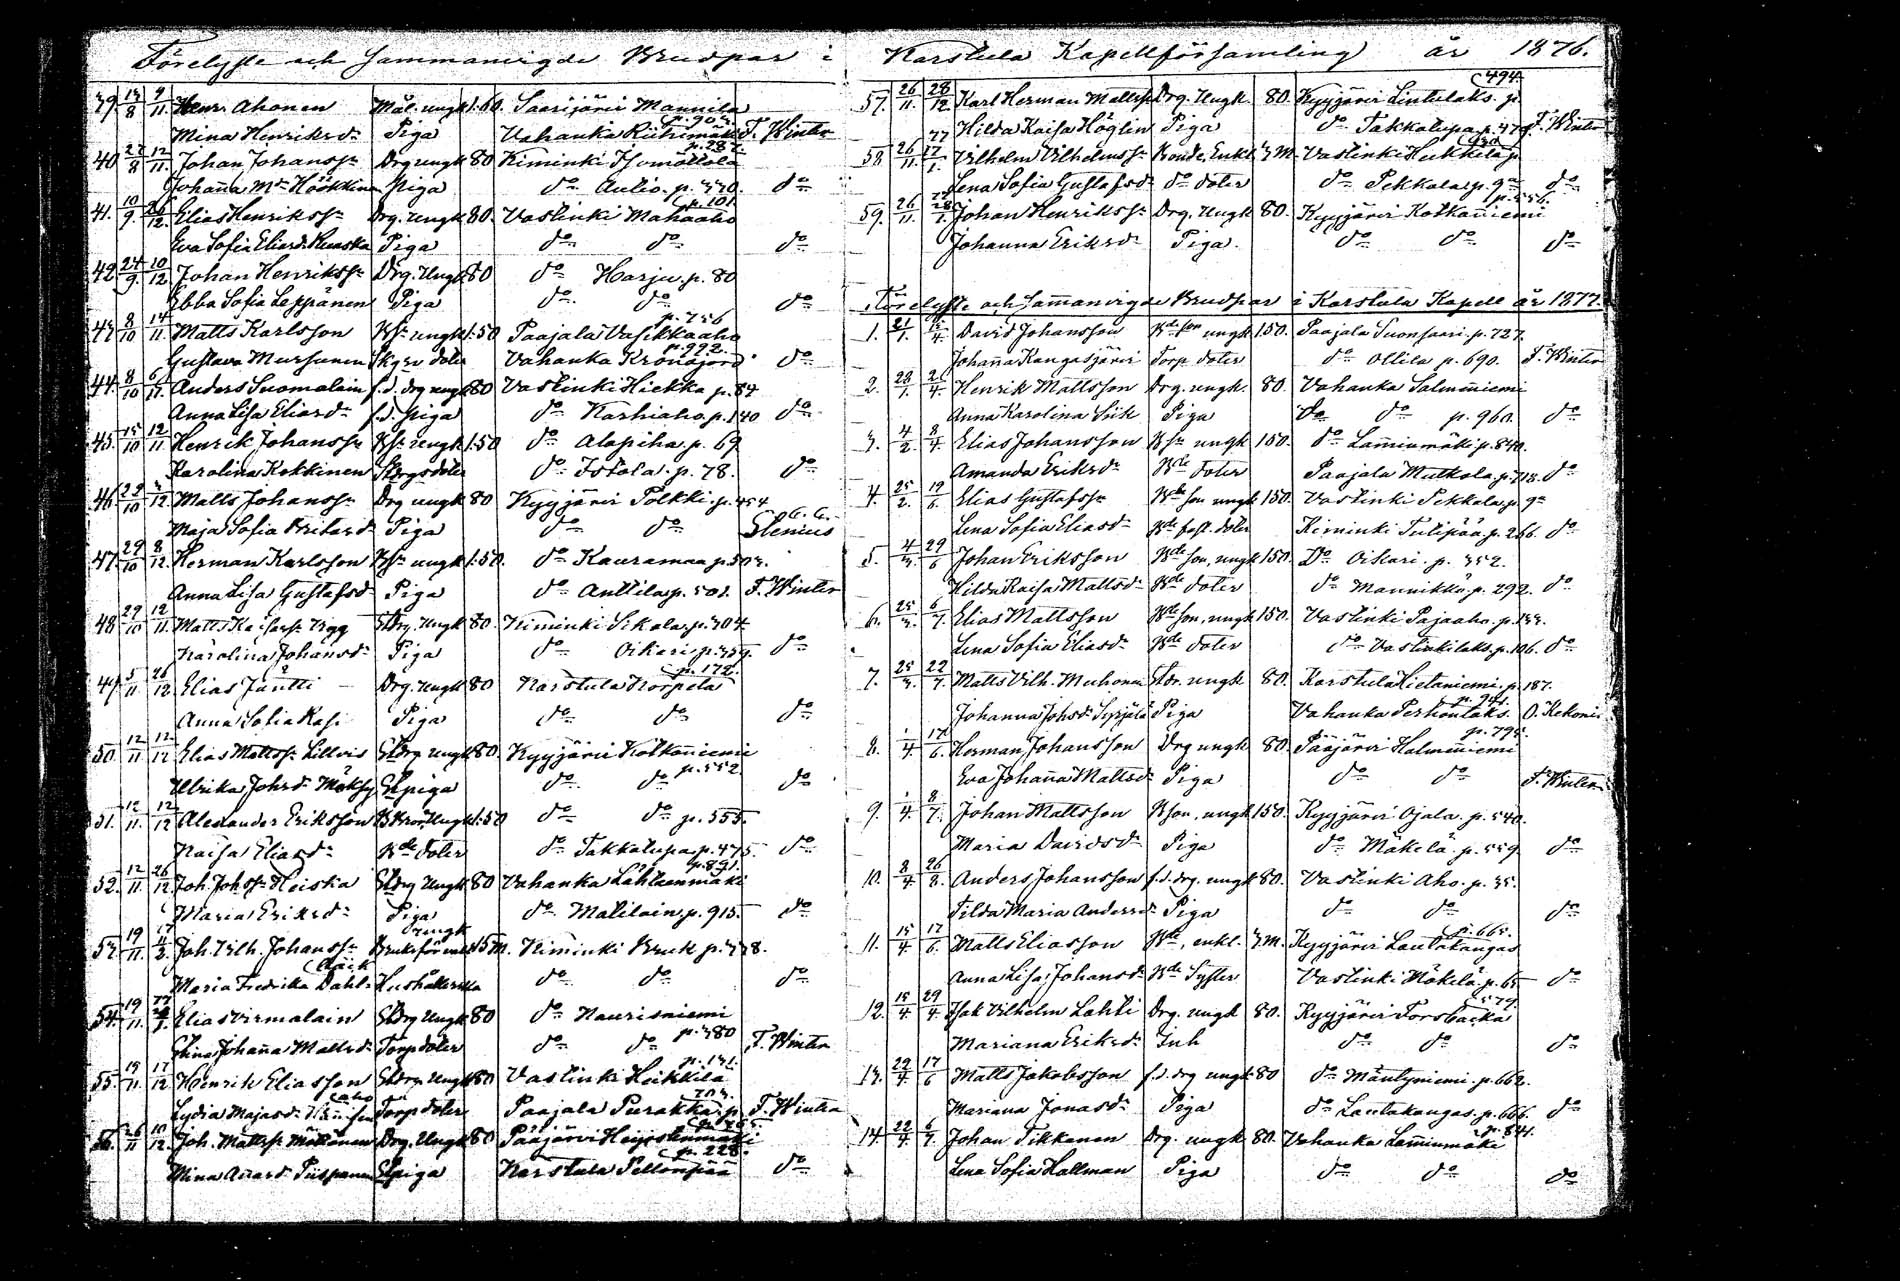 Förelyste och Sammanvigde Brudpar i Karstula Kapellförsamling år 1876.
39. 13/8 9/11 Henr. Ahonen Mål. ungk 1:60. Saarijärvi Mannila
Mina Henriksdr Piga Vahanka Riihimäki p. 903. F. Winter
40. 27/8 12/11 Johan Johansson Drg ungk 80 Kiminki Isomöttölä p. 287.
Johanna Mdr Hökkinen piga do Autio. p. 330. do
41. 10/9 26/12 Elias Henriksson Drg. Ungk 80. Vastinki Mahaaho p. 101.
Eva Sofia Eliasdr Piga do do do
42. 24/9 10/12 Johan Henriksson Drg. Ungk 80 do Harju p. 80
Ebba Sofia Leppänen Piga do do do
43. 8/10 14/11 Matts Karlsson ungk 1:50 Paajala Vasikkaaho p. 756
Gustava Mursunen doter Vahanka Kronojord p. 992. do
44. 8/10 6/11 Anders Suomalain f.d. drg ungk 80 Vastinki Hiekka p. 84
Anna Lisa Eliasdr f.d. piga do Karhiaho p. 140 do
45. 15/10 12/11 Henrik Johansson ungk 1:50 do Alapiha p. 69
Karolina Kokkinen do Isotalo p. 78. do
46. 22/10 3/12 Matts Johansson Drg ungk 80 Kyyjärvi Pölkki p. 454
Maja Sofia Piga do do G. G. Glenius
47. 29/10 8/12 Herman Karlsson ungk 1:50. do Kauramaa p. 503.
Anna Lisa Gustafsdr Piga do Anttila p. 501. F. Winter
48. 29/10 12/11 Matts Drg. Ungk 80. Kiminki Sikala p. 304
Karolina Johansdr Piga do Oikari p. 359. do
49. 5/11 26/12 Elias Jäntti Drg. Ungk 80 Karstula Korpela p. 172.
Anna Sofia Kasi Piga do do do
50. 12/11 12/12 Elias Mattss. Lillvis Drg ungk 80. Kyyjärvi Kotkanniemi
Ulrika Johsdr piga do do p. 552 do
51. 12/11 12/12 Alexander Eriksson Ungk 1:50 do do p. 555.
Kaisa Eliasdr doter do Takkalupa p. 475. do
52. 12/11 26/12 Joh. Johss. Heiska Drg Ungk 80 Vahanka Lähteenmäki p. 891.
Maria Eriksdr Piga do Matilain p. 915. do
53. 19/11 Joh. Vilh. Johansson 15 M. Kiminki Bruk p. 378.
Maria Fredrika Dahl Hushållerska do do do
54. 19/11 Elias Virmalain Drg Ungk 80 do Naurisniemi
Johanna Mattsdr Torp doter do do p. 380 F. Winter
55. 19/11 17/12 Henrik Eliasson Drg Ungk 80 Vastinki Heikkilä p. 131.
Lydia Majasdr Torp doter Paajala Purakka p. 703. F. Winter
56. 26/11 10/12 Joh. Mattss. Mökönen Drg. Ungk 80 Pääjärvi
Mina piga Karstula Pellonpää p. 228. do
57. 26/11 28/12 Karl Herman Mattss Drg. Ungk. 80. Kyyjärvi Lintulaks. p. 494.
Hilda Kaisa Höglin Piga do Takkalupa p. 479. F. Winter
58. 26/11 77 17/1. Vilhelm Vilhelmss. Bonde, Enkl. 3 M. Vastinki Heikkilä p.
Lena Sofia Gustafsdr do doter do Pekkala p. 9 do
59. 26/11. 77 28/1. Johan Henrikss. Drg. Ungk 80. Kyyjärvi Kotkanniemi p. 556.
Johanna Eriksdr Piga. do do do
Förelyste och Sammanvigde Brudpar i Karstula Kapell år 1877.
1. 21/1. 15/4 David Johansson ungk 150. Paajala Suonsaari p. 727.
Johanna Kangasjärvi Torp. doter do Ollila p. 690. F. Winter
2. 28/1. 2/4 Henrik Mattsson Drg. ungk. 80. Vahanka Salmenniemi
Anna Karolina Piga do do p. 960. do
3. 4/2. 8/4 Elias Johansson ungk 150. do Lamminmäki p. 840.
Amanda Eriksdr Bde doter Paajala Mulkola p. 718. do
4. 25/2. 19/6 Elias Gustafss. Bde son ungk 150. Vastinki Pekkala p. 9
Lena Sofia Eliasdr Bde fost. doter Kiminki Tulipää p. 266. do
5. 4/3. 29/6 Johan Eriksson Bde son, ungk 150. Do Oikari p. 352.
Hilda Kaisa Mattsdr Bde doter do Mannikkö p. 292. do
6. 25/3. 6/7. Elias Mattsson Bde son, ungk 150. Vastinki Pajaaho p. 133.
Lena Sofia Eliasdr Bde doter do Vastinkilaks. p. 106. do
7. 25/3. 22/7. Matts Vilh. Muhonen ungk 80. Karstula Hietaniemi p. 187.
Johanna Johsdr Syrjälä Piga Vahanka O. Kekonis
8. 1/4 17/6. Herman Johansson Drg ungk 80. Pääjärvi Halmenniemi p. 795.
Eva Johanna Mattsdr Piga do do F. Winter
9. 1/4. 8/7. Johan Mattsson Bson, ungk 150. Kyyjärvi Ojala p. 540.
Maria Davidsdr Piga do Mäkelä p. 559 do
10. 8/4 26/8. Anders Johansson f.d. drg. ungk 80. Vastinki Aho p. 35.
Tilda Maria Andersdr Piga do do do
11. 15/4 17/6. Matts Eliasson Bde, enkl. 3 M. Kyyjärvi Lautakangas p. 665.
Anna Lisa Johansdr Bde Syster Vastinki Mäkelä p. 65 do
12. 15/4. 29/4. Isak Vilhelm Lahti Drg. ungk 80. Kyyjärvi Forsbacka 579.
Mariana Eriksdr Inh do do do
13. 22/4. 17/6 Matts Jakobsson f.d. drg ungk 80 do Mäntyniemi p. 662.
Mariana Jonasdr Piga do Lautakangas p. 666. do
14. 22/4. 6/7. Johan Tikkanen Drg. ungk 80. Vahanka Lamminmäki p. 841.
Lena Sofia Hallman Piga do do do